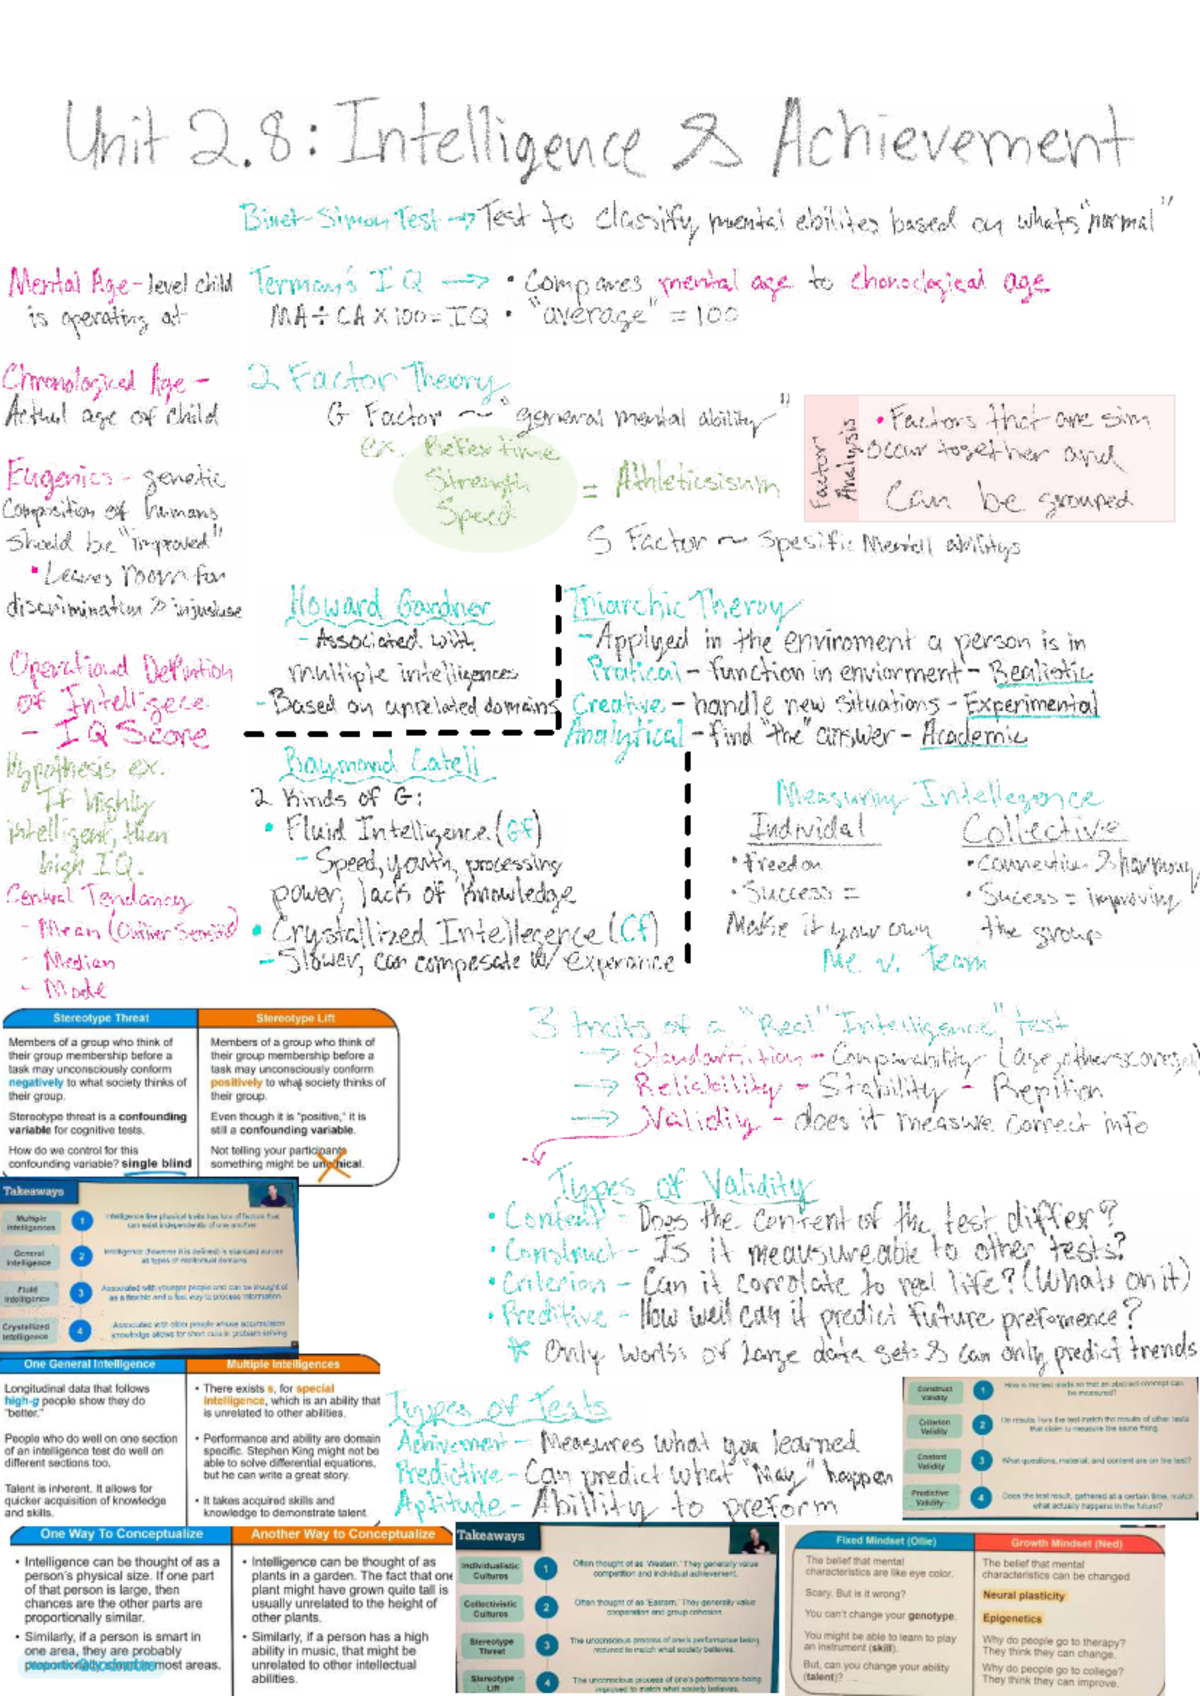 Unit 2.8: Intelligence & Achievement
Binet-Simon Test → Test to classify mental ebilites based on whats "normal"
Mental Age - level child
is operating at
Terman's IQ → • Compares mental age to chonoclogical age
MA ÷ CA x 100 = IQ • "average" = 100
Chronological Age -
Actual age of child
2 Factor Theory
G Factor ~ "general mental ability"
ex. Reflex time
Strength
Speed
= Athleticsisum
Factor Analysis
• Factors that are sim
occur together and
Can be grouped
S Factor ~ Spesific Mental abilitys
Eugenics - genetic
Composition of humans
should be "improved"
• Leaves room for
discrimination & injustuse
Operational Defintion
of Intelligece
- IQ Score
Hypothesis ex.
If highly
intelligent, then
high IQ.
Central Tendancy
- Mean (Outlier Sensitive)
- Median
- Mode
Howard Gardner
- Associated with
multiple intelligences
- Based on unrelated domains
Triarchic Theroy
- Applyed in the enviroment a person is in
Pratical - function in enviorment - Realistic
Creative - handle new situations - Experimental
Analytical - find "the" answer - Academic
Raymond Catell
2 Kinds of G:
• Fluid Intelligence (GF)
- Speed, youth, processing
power, lack of knowledge
• Crystallized Intellegence (Cf)
- Slower, can compesate w/ experance
Measuring Intellegence
Individal
• freedom
• Success =
Make it your own
Collective
• Connection & harmony
• Sucess = improving
the group
Me v. Team
Stereotype Threat
Members of a group who think of
their group membership before a
task may unconsciously conform
negatively to what society thinks of
their group.
Stereotype threat is a confounding
variable for cognitive tests.
How do we control for this
confounding variable? single blind
Stereotype Lift
Members of a group who think of
their group membership before a
task may unconsciously conform
positively to what society thinks of
their group.
Even though it is "positive," it is
still a confounding variable.
Not telling your participants
something might be unethical.
3 traits of a "Real" Intelligence" test
→ Comparability
→ Reliability - Stability - Repition
→ Validity - does it measure correct info
Types of Validity
• Content - Does the content of the test differ?
• Construct - Is it meausureable to other tests?
• Criterion - Can it corrolate to real life? (Whats on it)
• Preditive - How well can it predict future preformence?
* Only works of large data sets & can only predict trends
Takeaways
Multiple Intelligences
1
Intelligence like physical traits has lots of factors that
can exist independently of one another
General Intelligence
2
Intelligence (however it is defined) is standard across
all types of intellectual domains
Fluid Intelligence
3
Associated with younger people and can be thought of
as a flexible and a fast way to process information
Crystallized Intelligence
4
Associated with older people whose accumulated
knowledge allows for short cuts in problem solving
One General Intelligence
Longitudinal data that follows
high-g people show they do
"better."
People who do well on one section
of an intelligence test do well on
different sections too.
Talent is inherent. It allows for
quicker acquisition of knowledge
and skills.
Multiple Intelligences
• There exists s, for special
intelligence, which is an ability that
is unrelated to other abilities.
• Performance and ability are domain
specific. Stephen King might not be
able to solve differential equations,
but he can write a great story.
• It takes acquired skills and
knowledge to demonstrate talent.
Types of Tests
Achivement - Measures what you learned
Predictive - Can predict what "May" happen
Aptitude - Abillity to preform
Construct Validity
1
How is the test made so that an abstract concept can
be measured?
Criterion Validity
2
Do results from the test match the results of other tests
that claim to measure the same thing
Content Validity
3
What questions, material, and content are on the test?
Predictive Validity
4
Does the test result, gathered at a certain time, match
what actually happens in the future?
One Way To Conceptualize
• Intelligence can be thought of as a
person's physical size. If one part
of that person is large, then
chances are the other parts are
proportionally similar.
• Similarly, if a person is smart in
one area, they are probably
most areas.
Another Way to Conceptualize
• Intelligence can be thought of as
plants in a garden. The fact that one
plant might have grown quite tall is
usually unrelated to the height of
other plants.
• Similarly, if a person has a high
ability in music, that might be
unrelated to other intellectual
abilities.
Takeaways
Individualistic Cultures
1
Often thought of as 'Western.' They generally value
competition and individual achievement.
Collectivistic Cultures
2
Often thought of as 'Eastern.' They generally value
cooperation and group cohesion.
Stereotype Threat
3
The unconscious process of one's performance being
reduced to match what society believes.
Stereotype Lift
4
The unconscious process of one's performance being
improved to match what society believes.
Fixed Mindset (Ollie)
The belief that mental
characteristics are like eye color.
Scary. But is it wrong?
You can't change your genotype.
You might be able to learn to play
an instrument (skill).
But, can you change your ability
(talent)?
Growth Mindset (Ned)
The belief that mental
characteristics can be changed
Neural plasticity
Epigenetics
Why do people go to therapy?
They think they can change.
Why do people go to college?
They think they can improve.